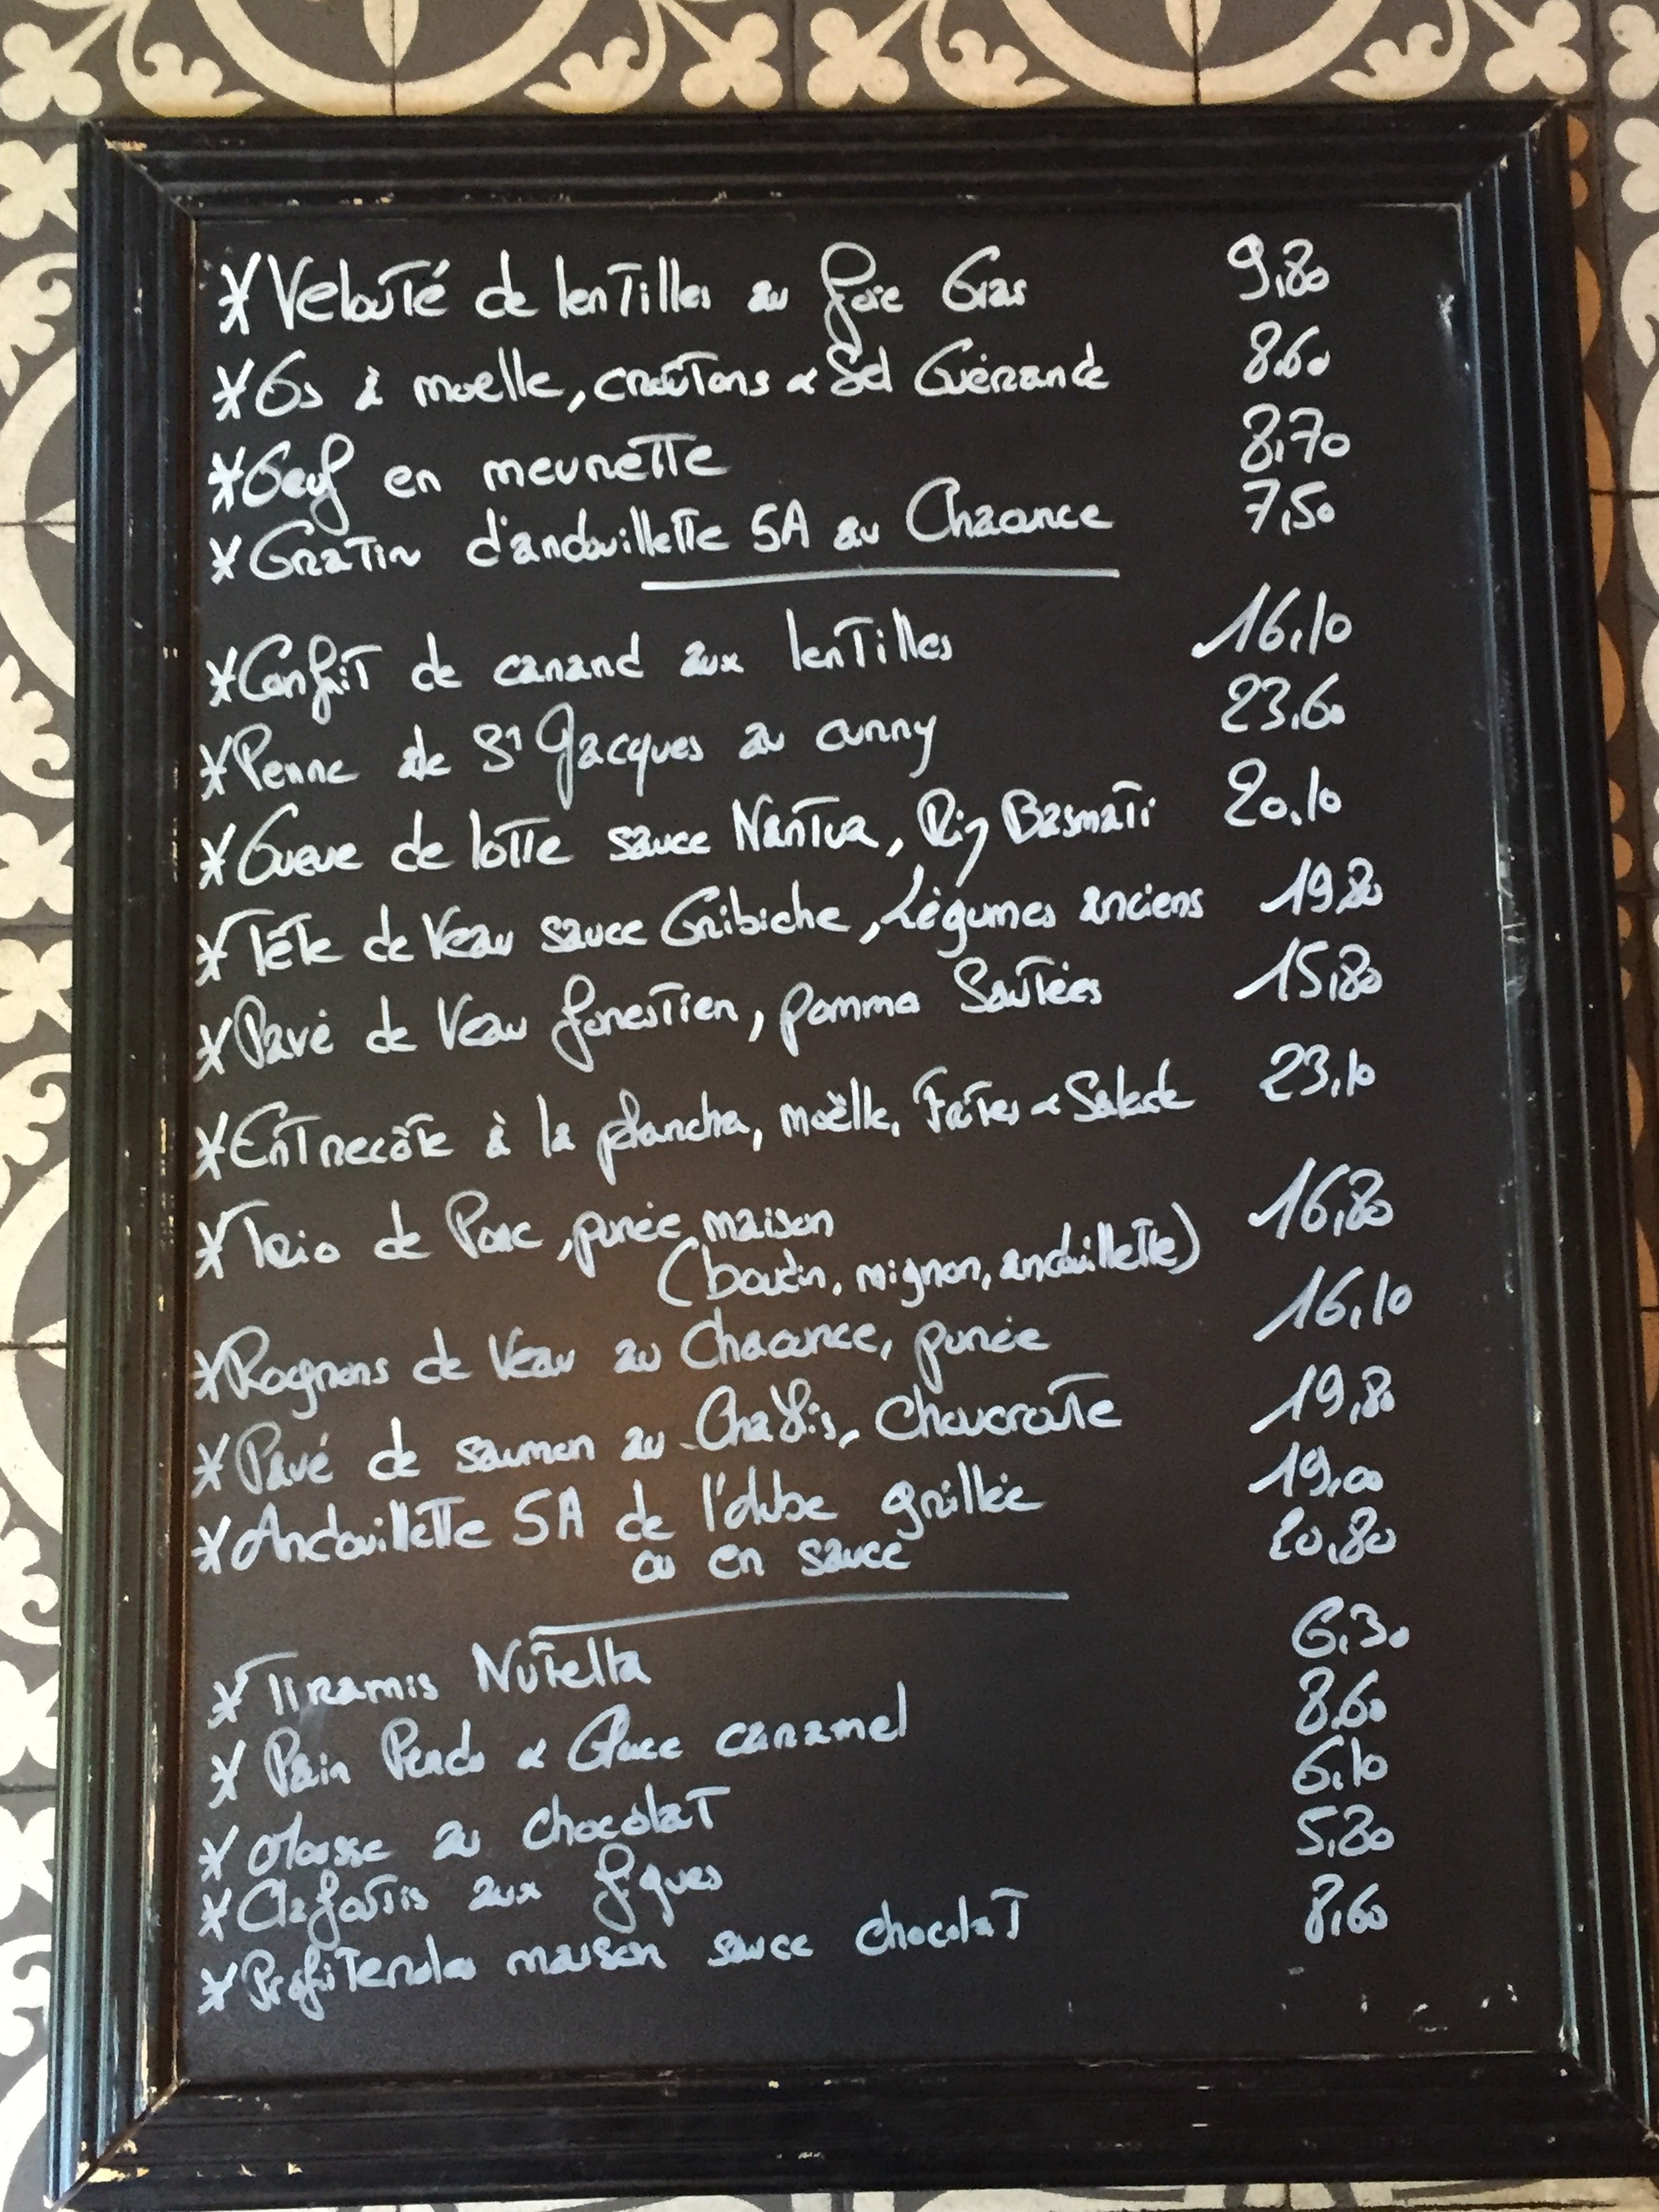 *Velouté de lentilles au foie Gras 9,80
*Os à moelle, croûtons & Sel Guérande 8,60
*Oeuf en meurette 8,70
*Gratin d'andouillette 5A au Chaource 7,50
*Confit de canard aux lentilles 16,10
*Penne de St Jacques au curry 23,60
*Queue de lotte sauce Nantua, Riz Basmati 20,10
*Tête de Veau sauce Gribiche, Légumes anciens 19,80
*Pavé de Veau forestier, pomme Sautées 15,80
*Entrecôte à la plancha, moëlle, Frites & Salade 23,10
*Trio de Porc, purée maison 16,80
(boudin, mignon, andouillette)
*Rognons de Veau au Chaource, purée 16,10
*Pavé de saumon au Chablis, Choucroute 19,80
*Andouillette 5A de l'Aube grillée 19,00
ou en sauce 20,80
*Tiramis Nutella 6,30
*Pain Perdu & Glace caramel 8,60
*Mousse au chocolat 6,10
*Clafoutis aux figues 5,80
*Profiteroles maison sauce chocolat 8,60